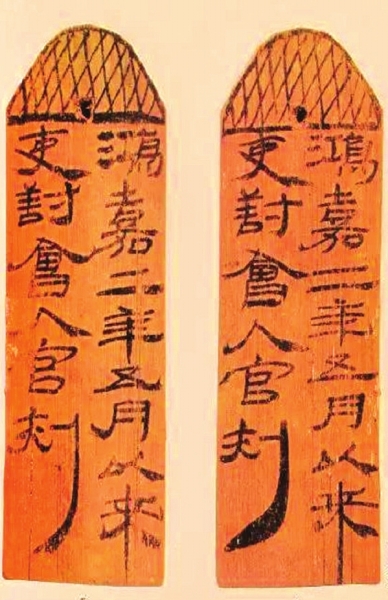 鴻嘉二年五月以来
吏對會入官刾
鴻嘉二年五月以来
吏對會入官刾